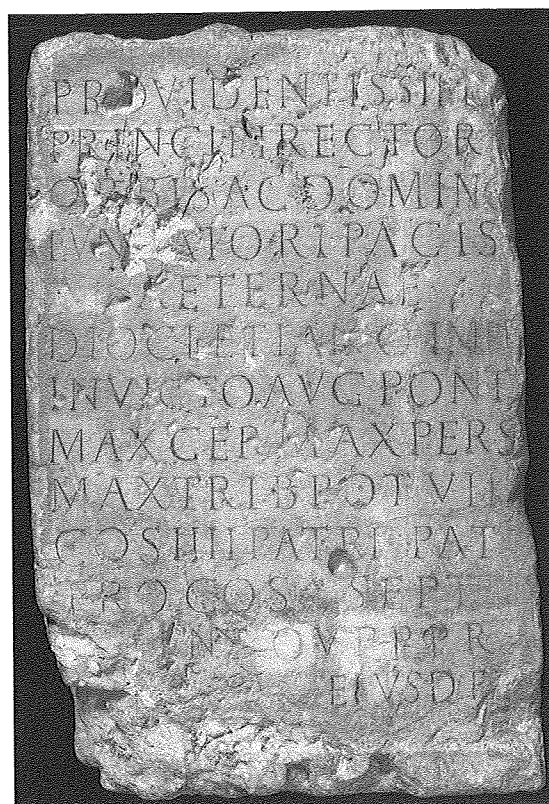 PROVIDENTISSIM
PRINCIPI RECTOR
ORBIS AC DOMIN
FVNDATORI PACIS
AETERNAE
DIOCLETIANO IMP
INVICTO AVG PONT
MAX GER MAX PERS
MAX TRIB POT VII
COS IIII PATRI PAT
PROCOS SEPT
V P P P R
EIVS D